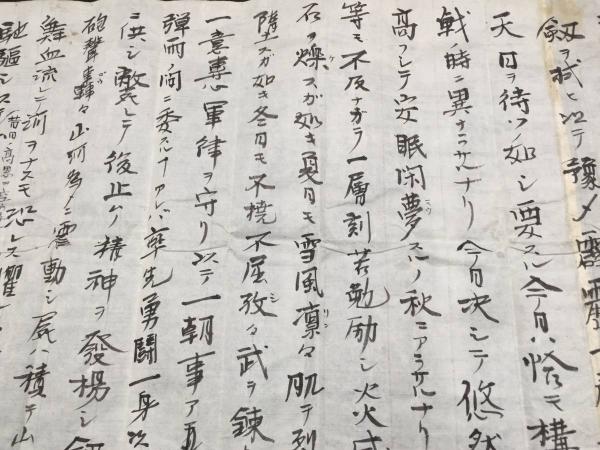 劔ヲ拭ヒ以テ豫メ
天日ヲ待ツノ如シ要スルニ今日ハ恰モ構
戦ノ時ニ異ナラサルナリ今日决シテ悠然
高フシテ安眠閑夢スルノ秋ニアラサルナリ
等モ不及ナガラ一層刻苦勉励シ炎火
石ヲ爍スガ如キ夏日モ雪風凛々肌ヲ列
堕スガ如キ冬日モ不撓不屈孜々武ヲ錬
一意専心軍律ヲ守リ以テ一朝事ア
弾雨ノ間ニ委スルアレバ率先勇闘一身以
ニ供シ斃レテ後止ムノ精神ヲ發揚シ劔
砲聲轟々山河為ニ震動シ屍ハ積テ山
舞血流レテ河ヲナスモ恐レス
馳驅シ